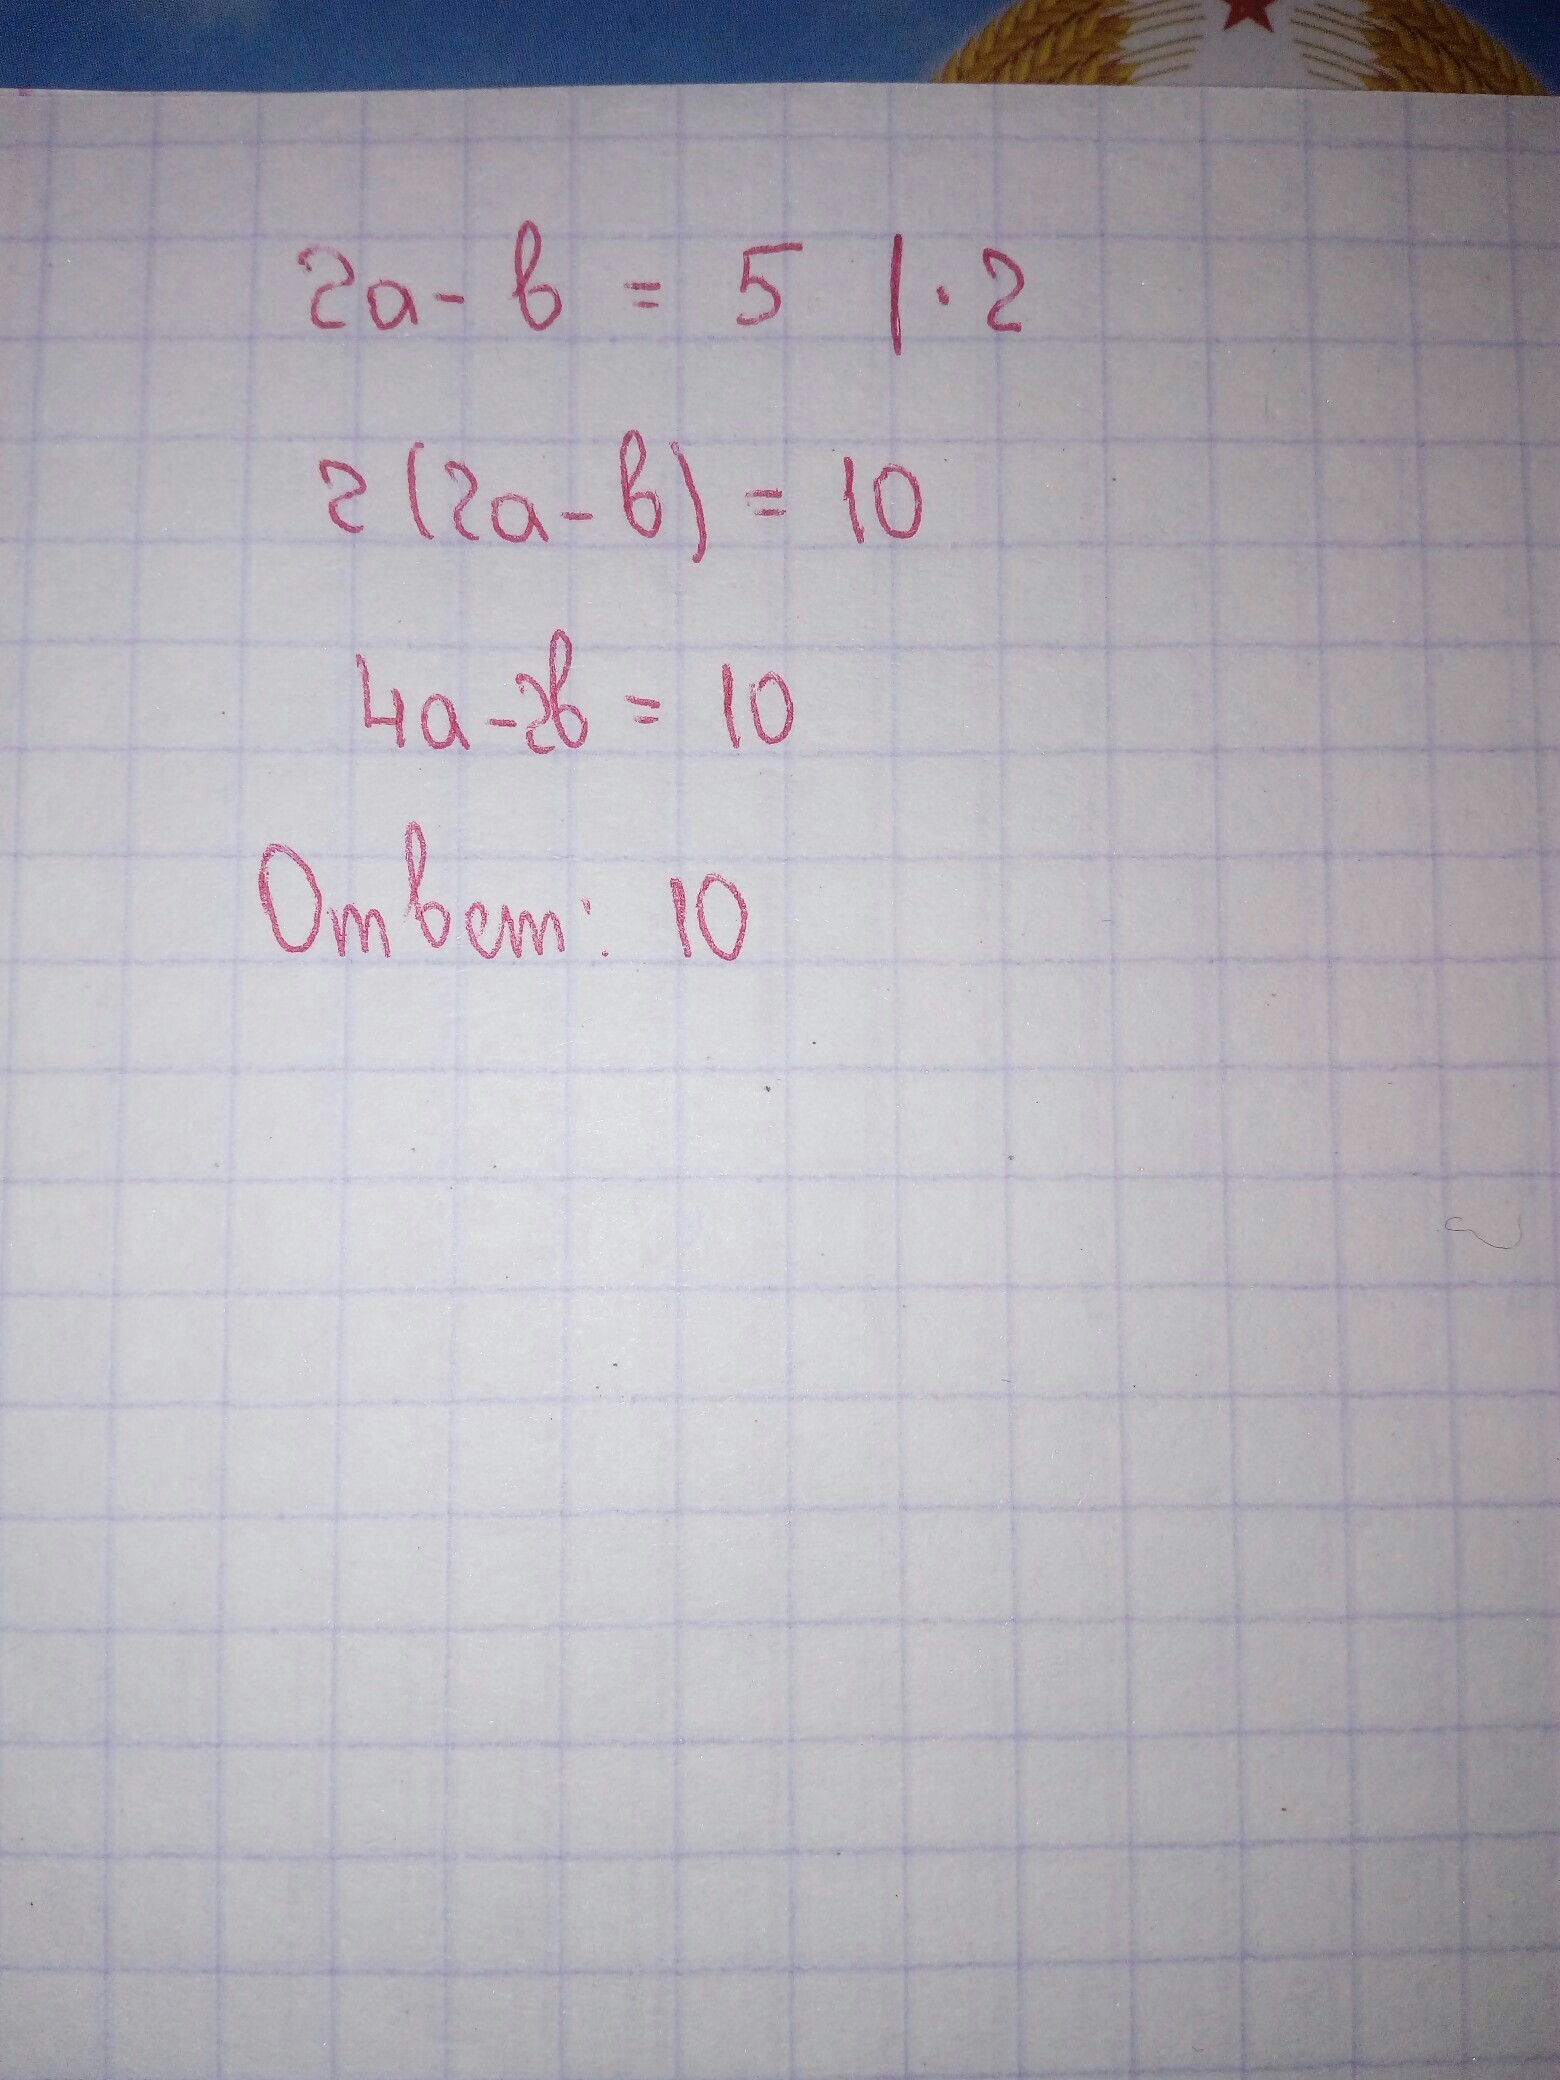 2a - b = 5 | · 2
2 (2a - b) = 10
4a - 2b = 10
Ответ: 10